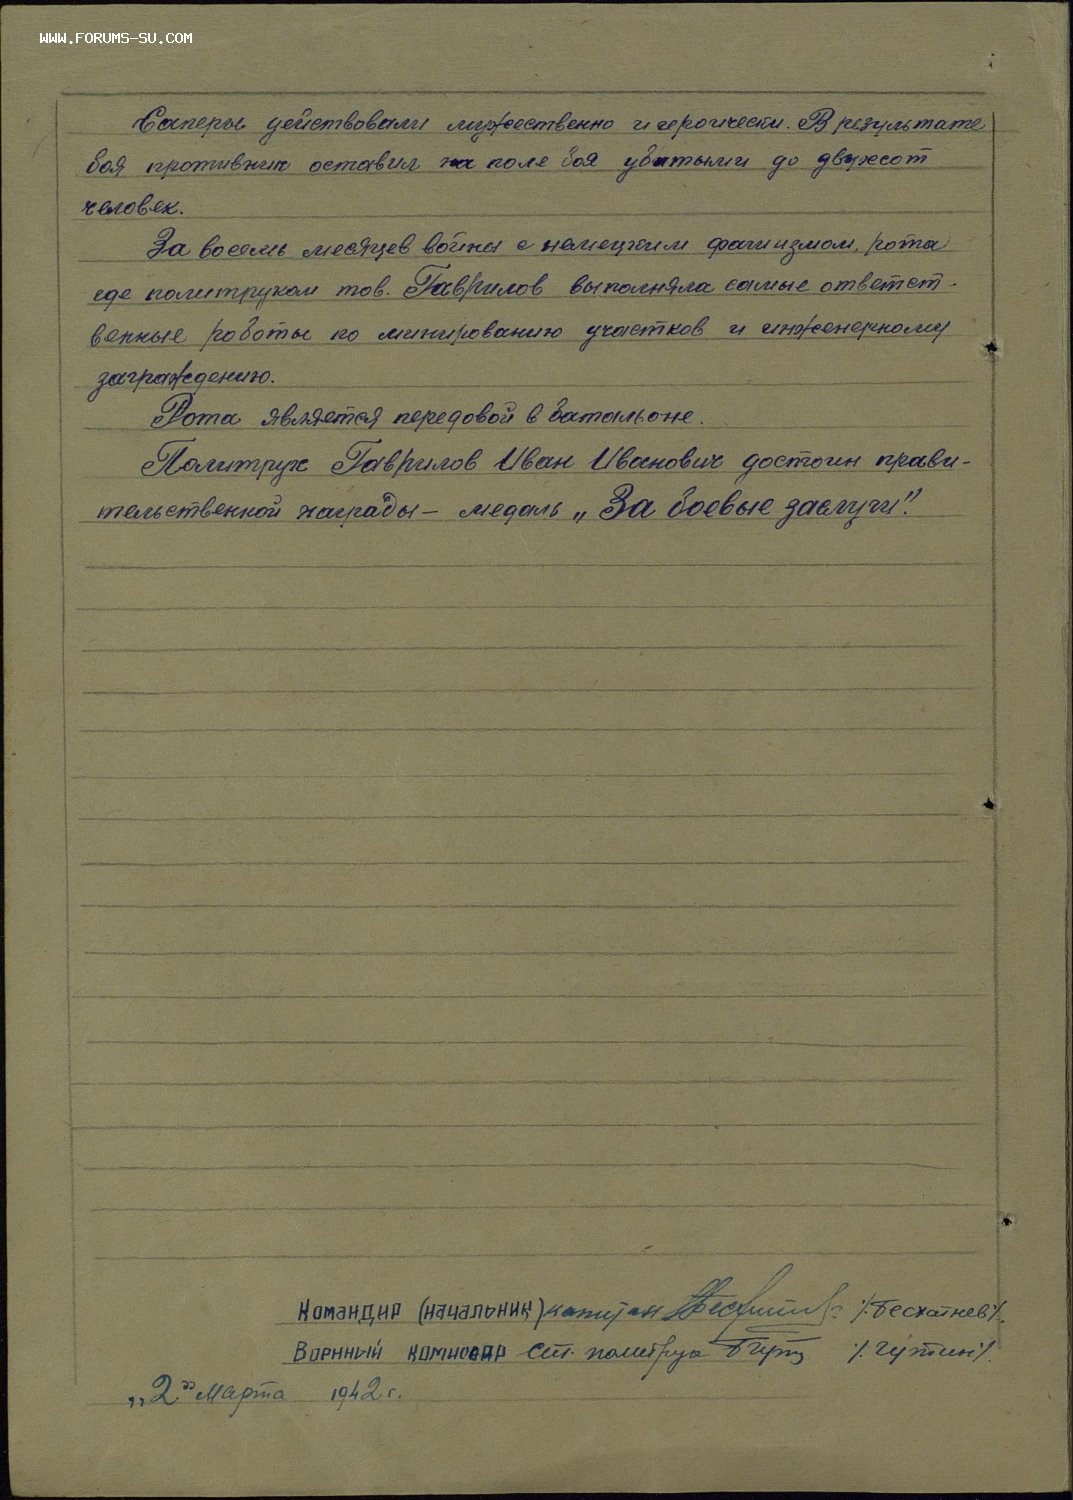 WWW.FORUMS-SU.COM
Саперы действовали мужественно и героически. В результате
боя противник оставил на поле боя убитыми до двухсот
человек.
За восемь месяцев войны с немецким фашизмом, рота
где политруком тов. Гаврилов выполняла самые ответст-
венные работы по минированию участков и инженерному
заграждению.
Рота является передовой в батальоне.
Политрук Гаврилов Иван Иванович достоин прави-
тельственной награды – медаль „За боевые заслуги".
Командир (начальник) капитан /Бесхатнев/.
Военный комиссар ст. политрук /Гутин/.
„2" марта 1942 г.